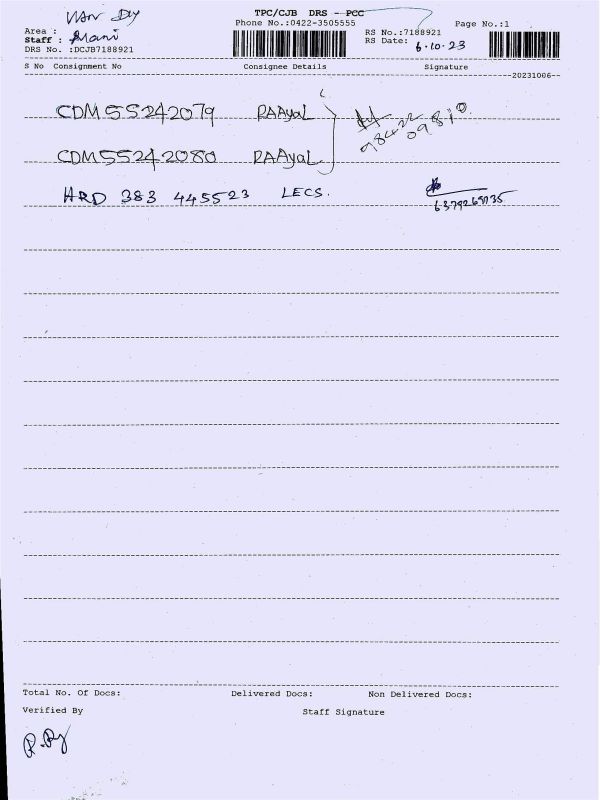 VAN DLY
TPC/CJB DRS - PCC
Phone No.:0422-3505555
Page No.:1
Area :
Staff : Mani
DRS No. :DCJB7188921
RS No.:7188921
RS Date: 6.10.23
S No Consignment No Consignee Details Signature
20231006
CDM55242079 RAAyaL
98422
09810
CDM55242080 RAAyaL
HRD 383 445523 LECS.
Total No. Of Docs: Delivered Docs: Non Delivered Docs:
Verified By Staff Signature